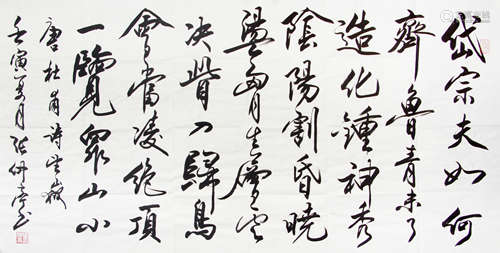 岱宗夫如何
齊魯青未了
造化鍾神秀
陰陽割昏曉
盪胷生層雲
決眥入歸鳥
會當凌絕頂
一覽眾山小
唐杜甫詩望嶽
壬寅 月張仲亭書